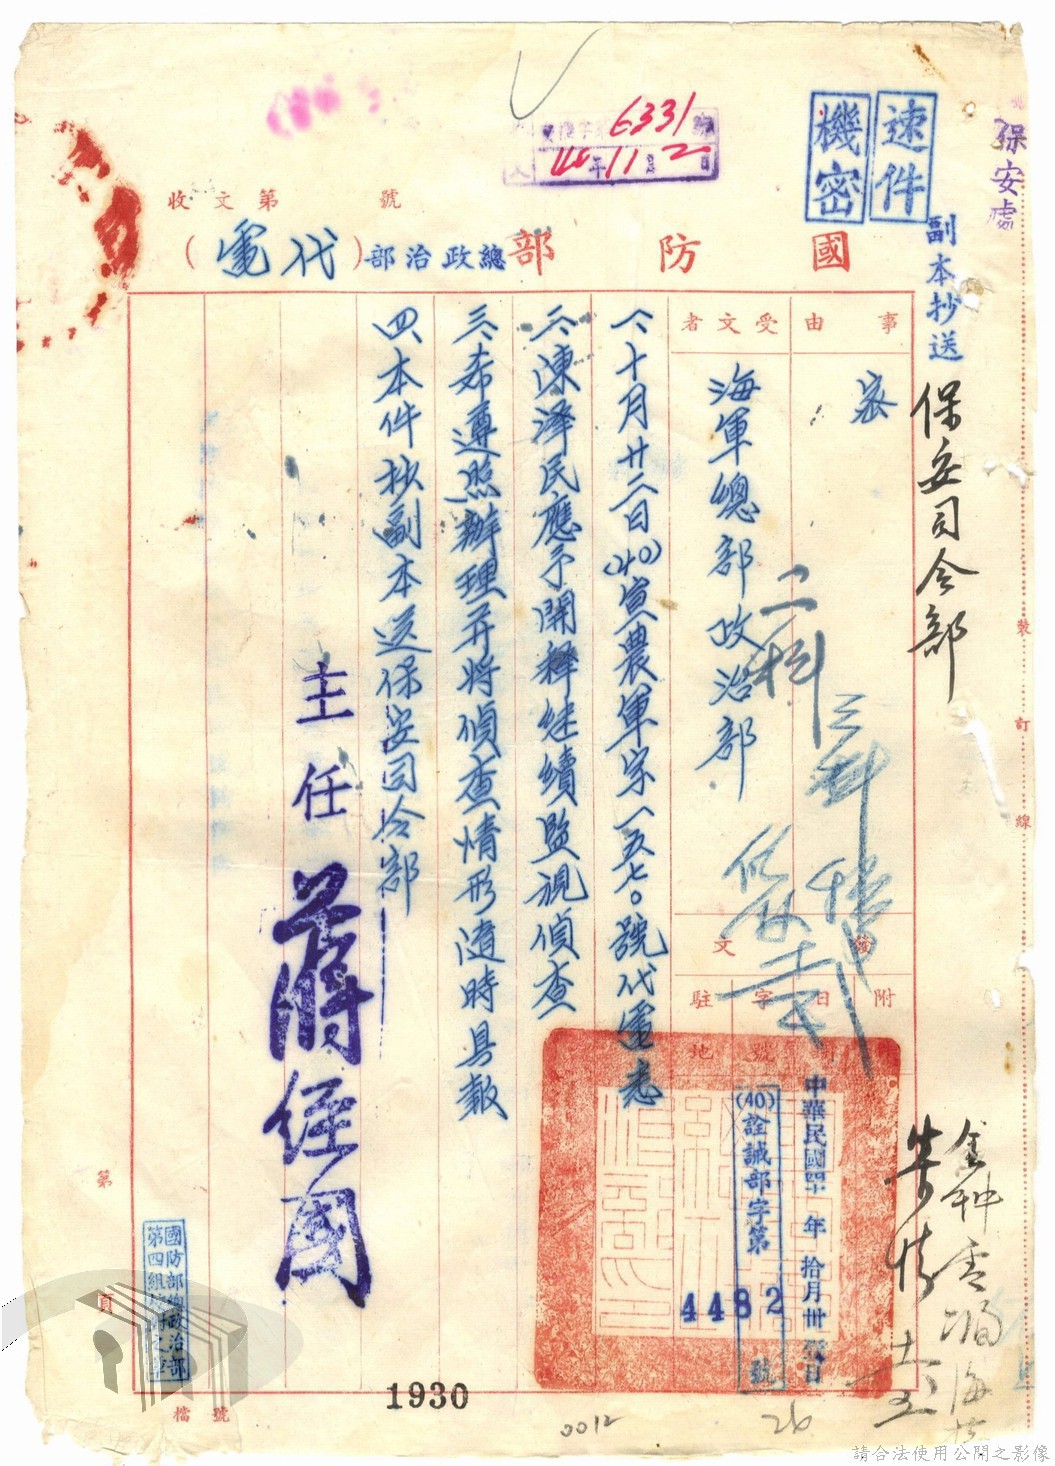 保安處
速件
機密
6331
40年11月2日
收文第 號
國防部總政治部（代電）
副本抄送
保安司令部
事由
密
受文者
海軍總部政治部
二科
三科
發文
附
日
字號
駐地
中華民國四十年拾月卅壹日
(40)詮誠部字第4482號
一、十月廿二日(40)宣農軍字一五七〇號代電悉
二、陳澤民應予開釋继續監視偵查
三、希遵照辦理并將偵查情形随時具報
四、本件抄副本送保安司令部
主任 蔣經國
裝訂線
第
頁
國防部總政治部
第四組
檔號
1930
0012
26
請合法使用公開之影像